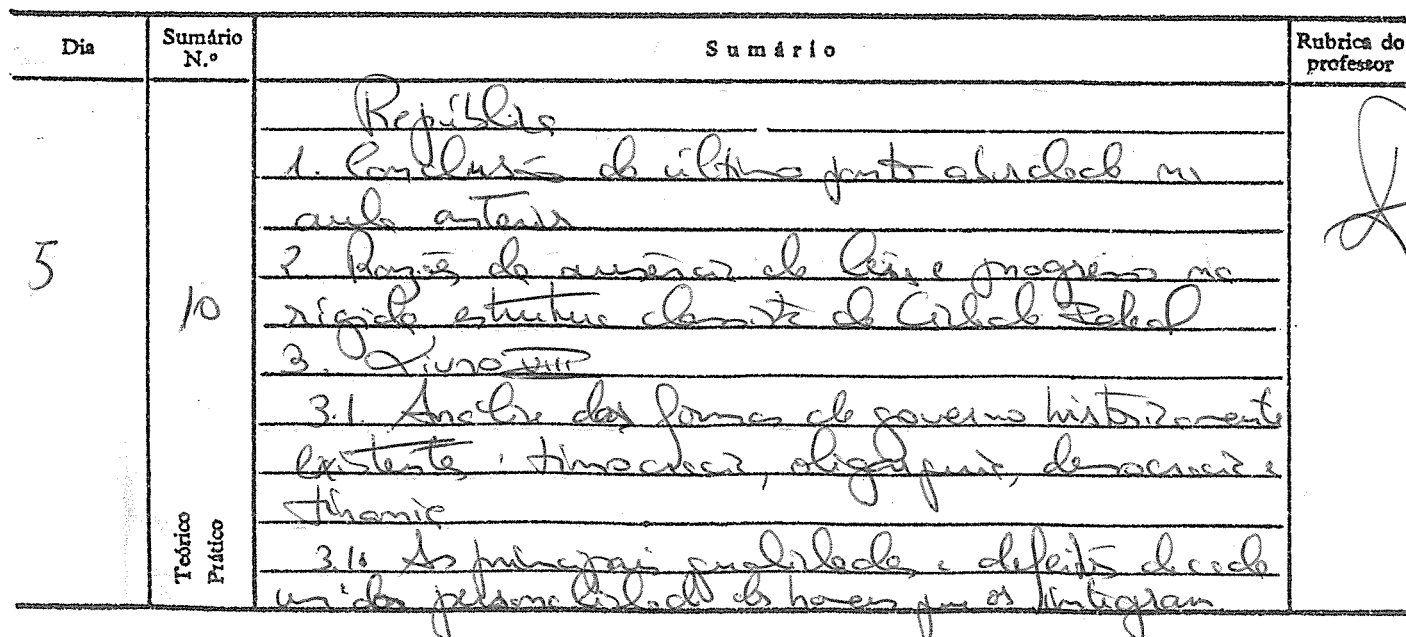 Dia
Sumário N.º
Sumário
Rubrica do professor
5
10
Teórico
Prático
República
1. Conclusão do último ponto abordado na
aula anterior
2 Razões da ausência de leis e progresso na
rígida estrutura classista da Cidade Ideal
3. Livro VIII
3.1. Análise das formas de governo historicamente
existentes: timocracia, oligarquia, democracia e
tirania
3.1. As principais qualidades e defeitos de cada
um dos personalidade dos homens que os integram.